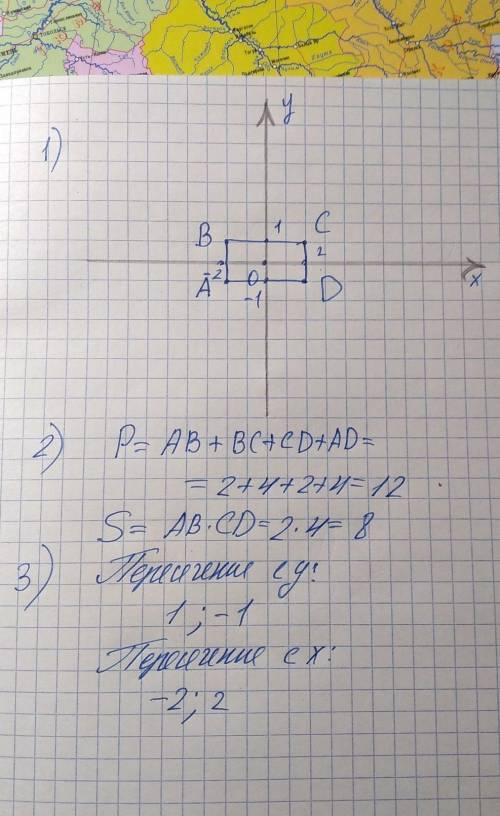 1)
y
B 1 C
-2 2
x
A O D
-1
2) P= AB+BC+CD+AD=
=2+4+2+4=12
S= AB·CD=2·4=8
3) Пересечение с у:
1; -1
Пересечение с х:
-2; 2